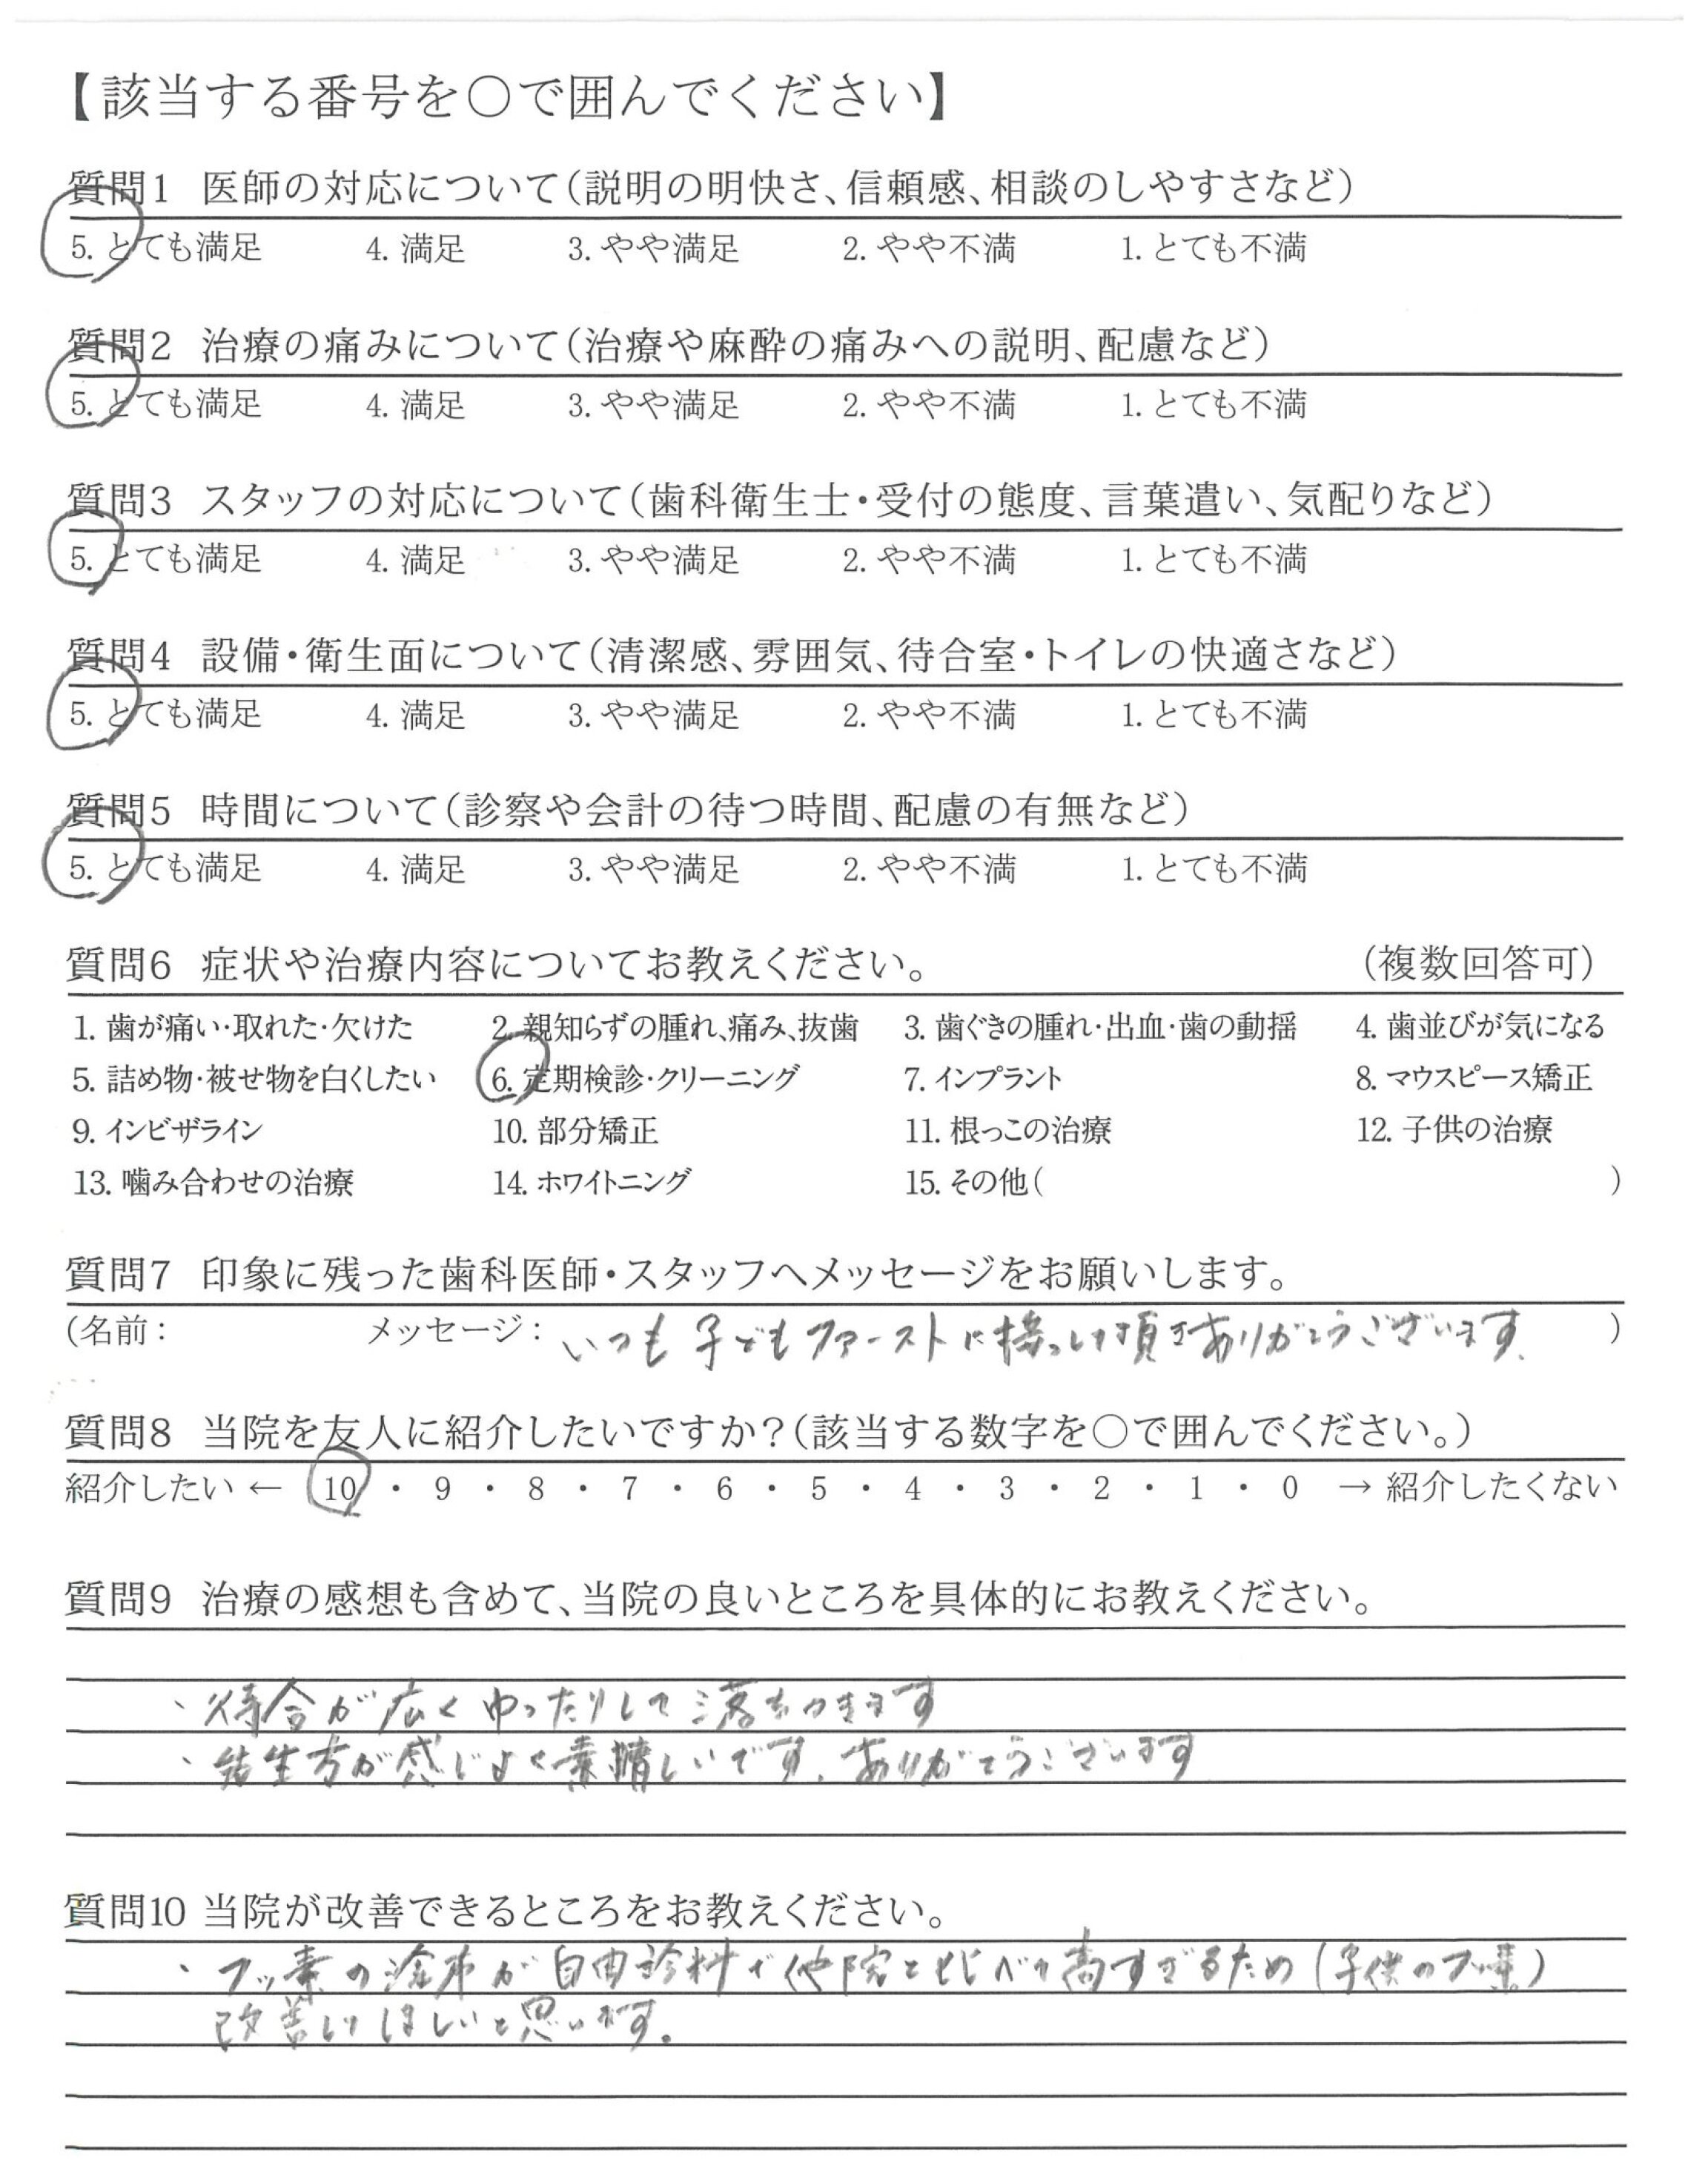 【該当する番号を○で囲んでください】
質問1 医師の対応について（説明の明快さ、信頼感、相談のしやすさなど）
5. とても満足 4. 満足 3. やや満足 2. やや不満 1. とても不満
質問2 治療の痛みについて（治療や麻酔の痛みへの説明、配慮など）
5. とても満足 4. 満足 3. やや満足 2. やや不満 1. とても不満
質問3 スタッフの対応について（歯科衛生士・受付の態度、言葉遣い、気配りなど）
5. とても満足 4. 満足 3. やや満足 2. やや不満 1. とても不満
質問4 設備・衛生面について（清潔感、雰囲気、待合室・トイレの快適さなど）
5. とても満足 4. 満足 3. やや満足 2. やや不満 1. とても不満
質問5 時間について（診察や会計の待つ時間、配慮の有無など）
5. とても満足 4. 満足 3. やや満足 2. やや不満 1. とても不満
質問6 症状や治療内容についてお教えください。 （複数回答可）
1. 歯が痛い・取れた・欠けた 2. 親知らずの腫れ、痛み、抜歯 3. 歯ぐきの腫れ・出血・歯の動揺 4. 歯並びが気になる
5. 詰め物・被せ物を白くしたい 6. 定期検診・クリーニング 7. インプラント 8. マウスピース矯正
9. インビザライン 10. 部分矯正 11. 根っこの治療 12. 子供の治療
13. 噛み合わせの治療 14. ホワイトニング 15. その他（ ）
質問7 印象に残った歯科医師・スタッフへメッセージをお願いします。
（名前： メッセージ： いつも子どもファーストに接して頂きありがとうございます. ）
質問8 当院を友人に紹介したいですか？（該当する数字を○で囲んでください。）
紹介したい ← 10 ・ 9 ・ 8 ・ 7 ・ 6 ・ 5 ・ 4 ・ 3 ・ 2 ・ 1 ・ 0 → 紹介したくない
質問9 治療の感想も含めて、当院の良いところを具体的にお教えください。
・待合が広くゆったりして落ちつきます
・先生方が感じよく素晴しいです. ありがとうございます
質問10 当院が改善できるところをお教えください。
・フッ素の塗布が自由診料で他院と比べて高すぎるため（子供のフッ素）
改善してほしいと思います。